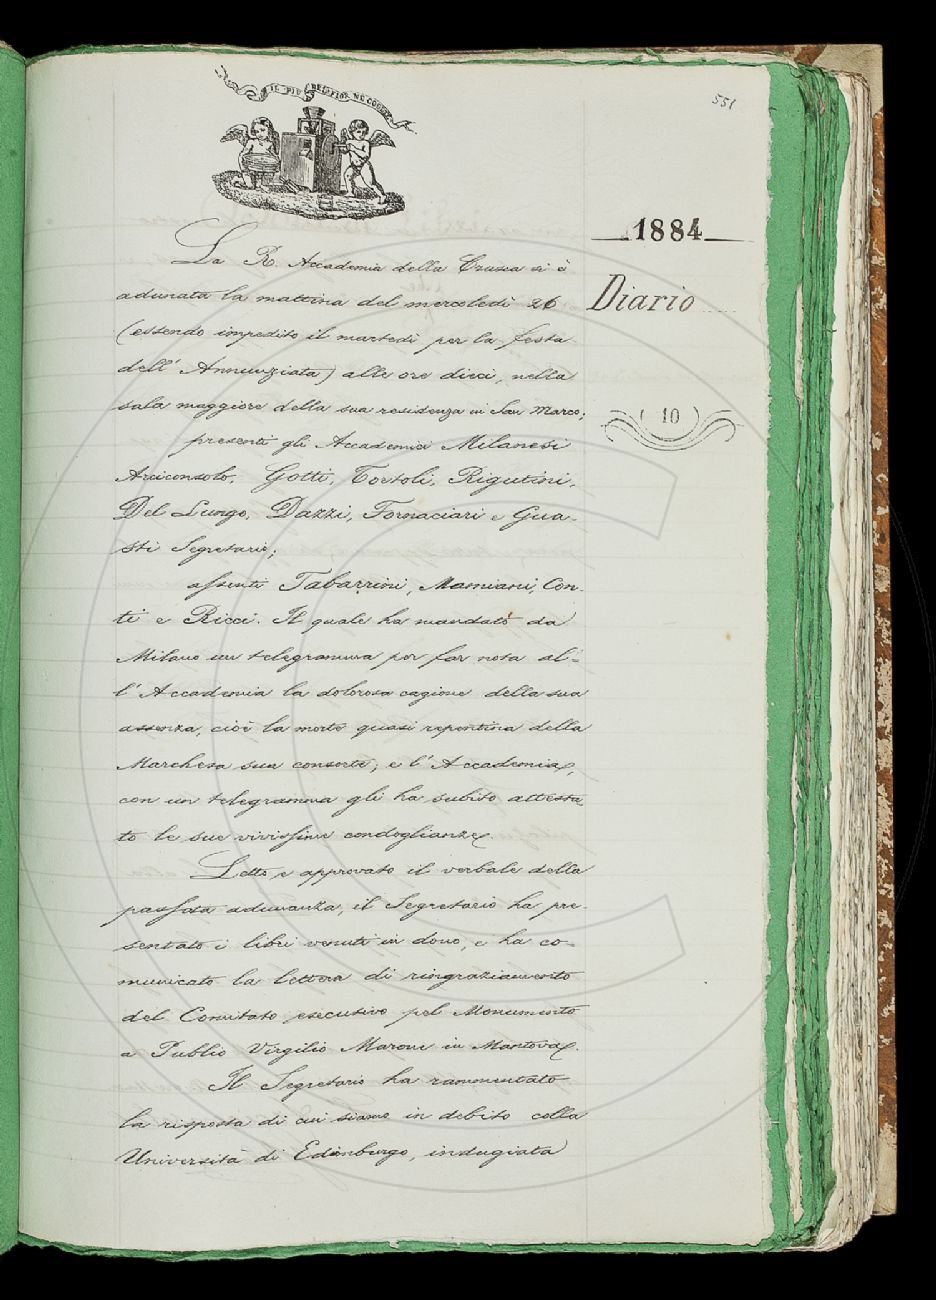 IL PIÙ BEL FIOR NE COGLIE
551
1884
Diario
(10)
La R. Accademia della Crusca si è
adunata la mattina del mercoledì 26
(essendo impedito il martedì per la festa
dell'Annunziata) alle ore dieci, nella
sala maggiore della sua residenza in San Marco;
presenti gli Accademici Milanesi
Arciconsolo, Gotti, Tortoli, Rigutini,
Del Lungo, Dazzi, Fornaciari e Gua-
sti Segretario;
assenti Tabarrini, Mamiani, Con-
ti e Ricci. Il quale ha mandato da
Milano un telegramma per far nota al-
l'Accademia la dolorosa cagione della sua
assenza, cioè la morte quasi repentina della
Marchesa sua consorte; e l'Accademia,
con un telegramma gli ha subito attesta
to le sue vivissime condoglianze.
Letto e approvato il verbale della
passata adunanza, il Segretario ha pre-
sentato i libri venuti in dono, e ha co-
municato la lettera di ringraziamento
del Comitato esecutivo pel Monumento
a Publio Virgilio Marone in Mantova.
Il Segretario ha rammentato
la risposta di cui siamo in debito colla
Università di Edimburgo, indugiata